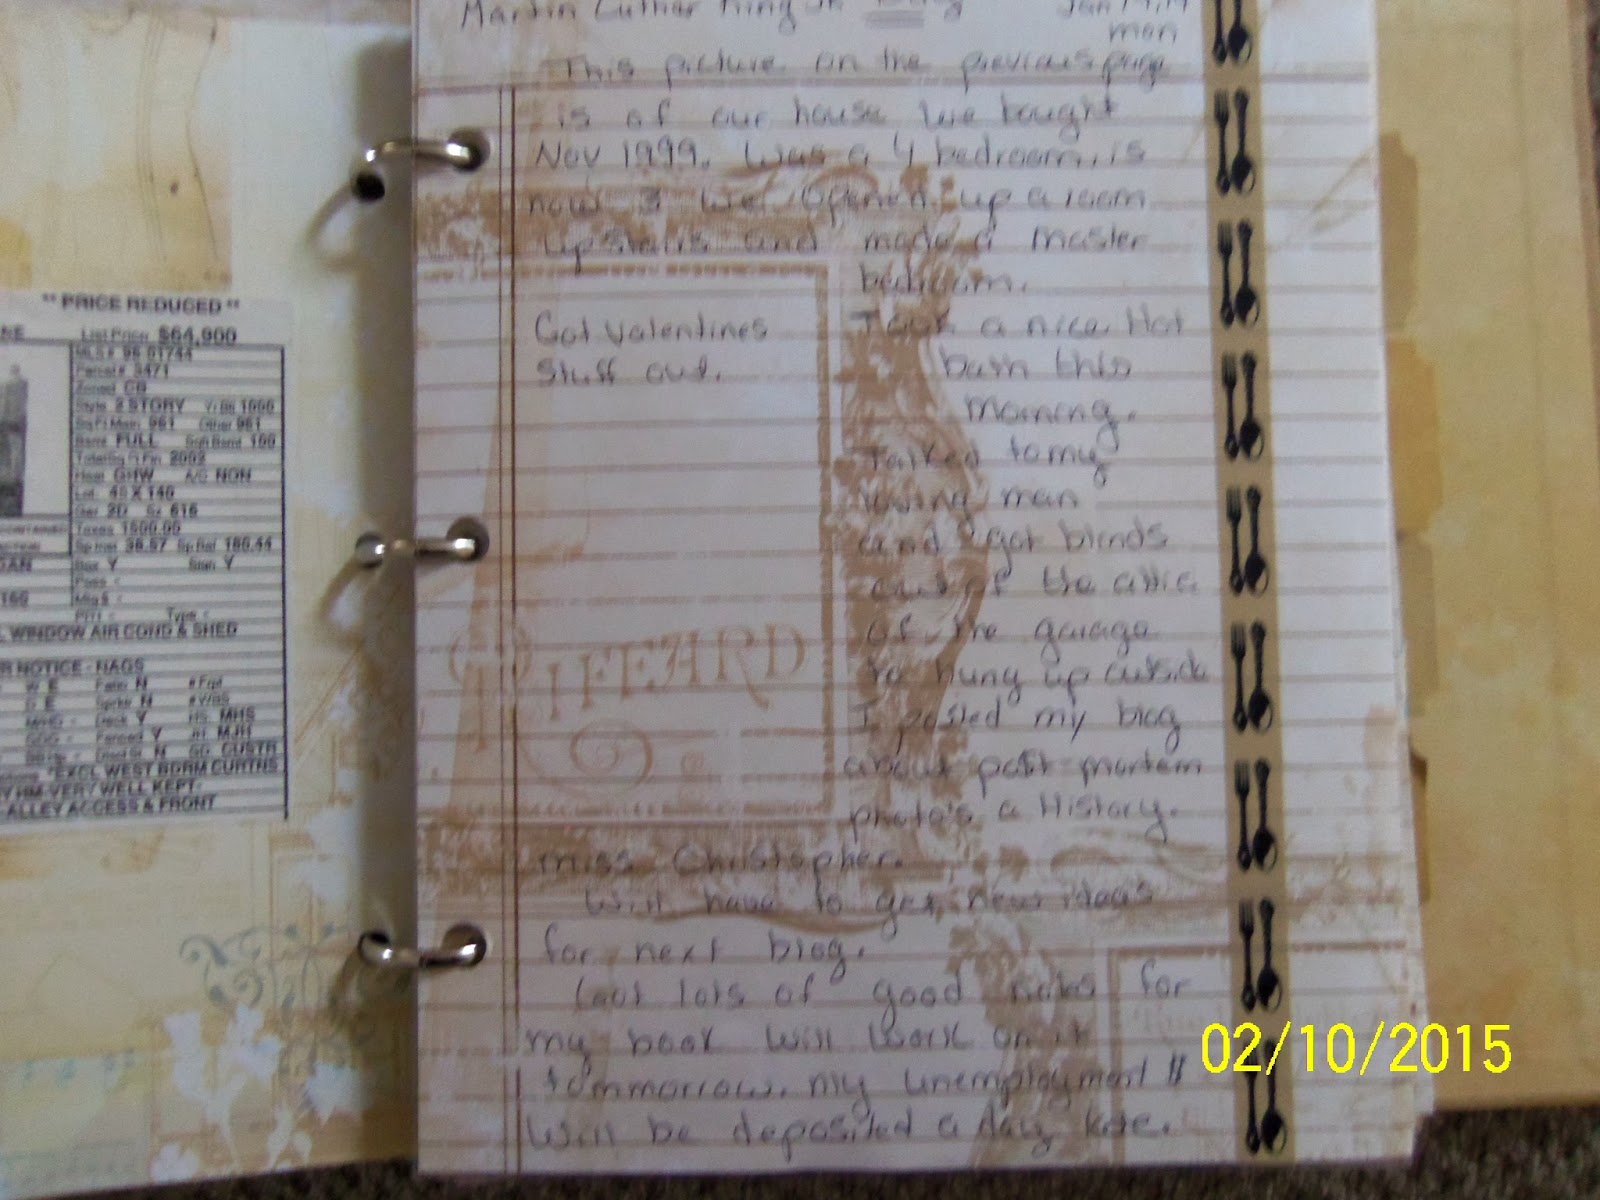 ** PRICE REDUCED **
List Price $64,900
MLS# 98 01744
Parcel# 3471
Zoned CB
Style 2 STORY Yr Blt 1900
SqFt Main 961 Other 961
Bsmt FULL SqFt Bsmt 100
Total Sq Ft Fin 2002
Heat GHW A/C NON
Lot 45 X 140
Gar 2D Sz 616
Taxes 1500.00
Sp Inst 38.57 Sp Bal 186.44
Box Y Sign Y
Poss -
Mtg $ -
Type -
WINDOW AIR COND & SHED
NOTICE - NAGS
W E Patio N # Frpl
D E Sprklr N
Deck Y HS MHS
Fenced Y JH MJH
N GD CUSTR
*EXCL WEST BDRM CURTNS
HM-VERY WELL KEPT-
ALLEY ACCESS & FRONT
Martin Luther King Jr Day Jan 19,
mon
This picture on the previous page
is of our house we bought
Nov 1999. Was a 4 bedroom, is
now 3 we opened up a room
upstairs and made a master
bedroom.
Got valentines
stuff out.
Took a nice Hot
bath this
morning.
Talked to my
loving man
and got blinds
out of the attic
of the garage
to hung up outside
I posted my blog
about post mortem
photo's a History.
miss Christopher.
Will have to get new ideas
for next blog.
Got lots of good notes for
my book will work on it
tommorrow. my unemployment $
Will be deposited a day late.
RIFFEARD
02/10/2015